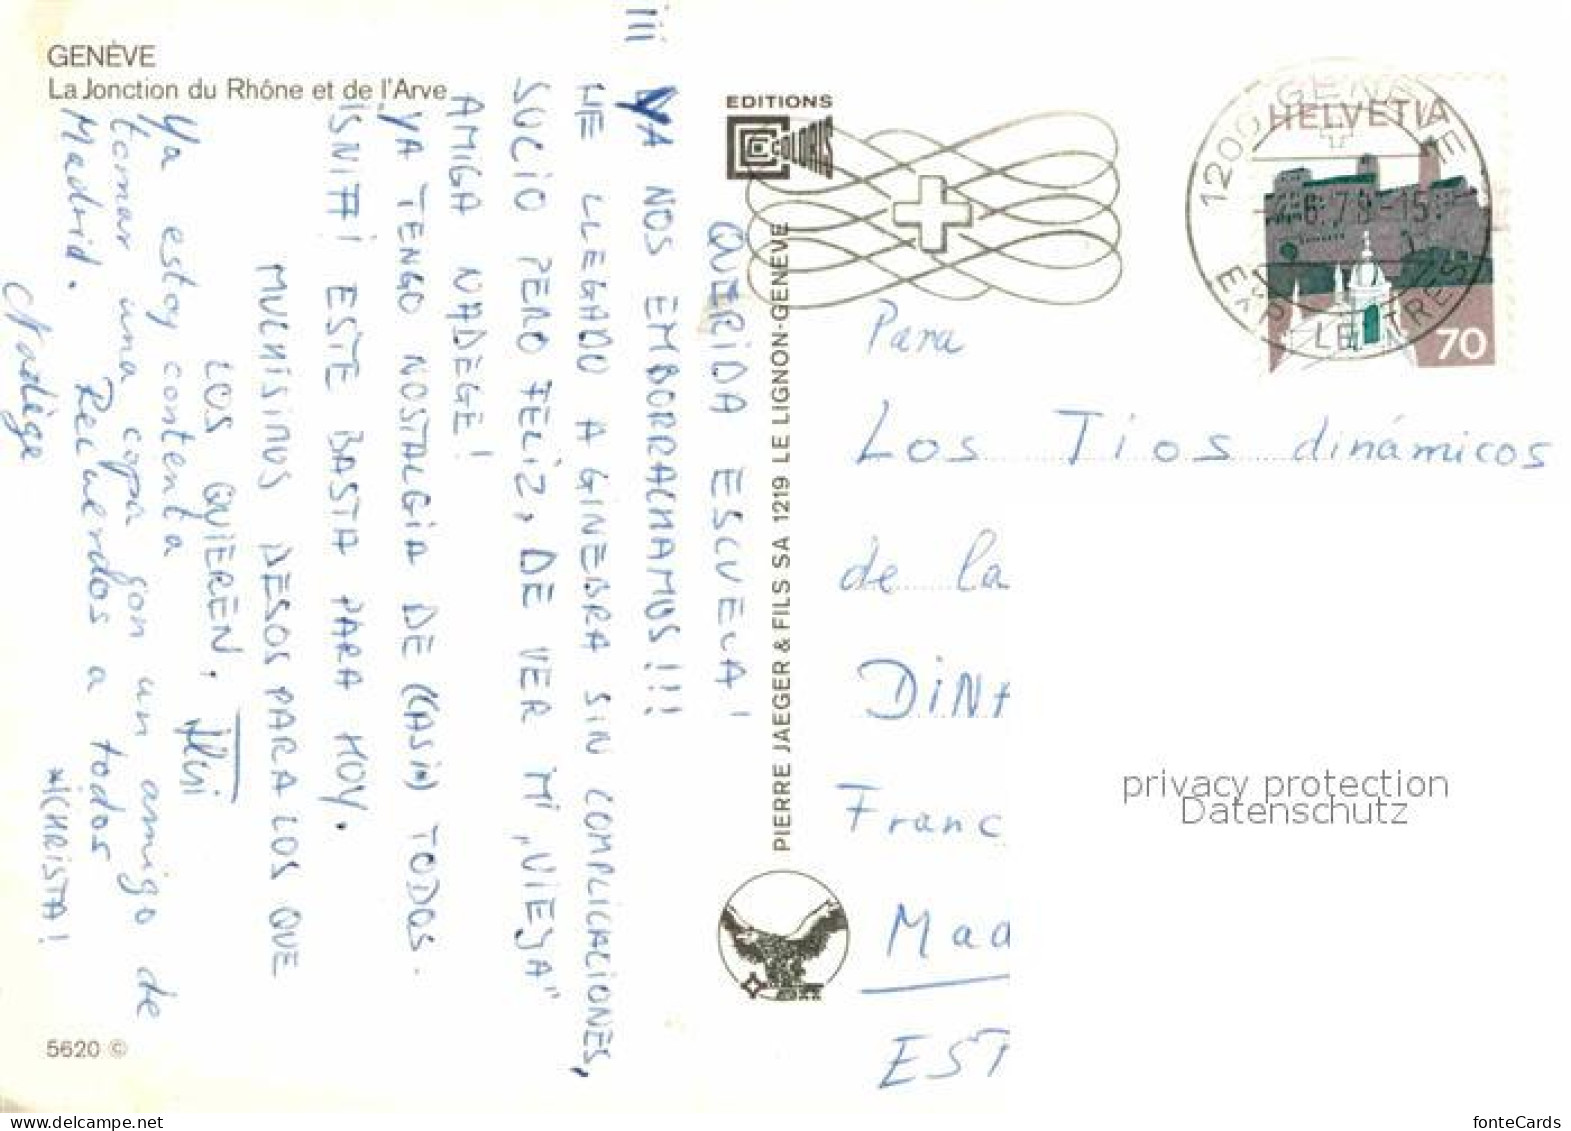 GENÈVE
La Jonction du Rhône et de l'Arve
QUERIDA ESCUELA!
¡¡¡ YA NOS EMBORRACHAMOS!!!
HE LLEGADO A GINEBRA SIN COMPLICACIONES,
SUCIO PERO FELIZ, DE VER MI „VIEJA"
AMIGA NADEGE!
YA TENGO NOSTALGIA DE (CASI) TODOS.
ESTE BASTA PARA HOY.
MUCHISIMOS BESOS PARA LOS QUE
LOS QUIEREN,
Ya estoy contenta
tomar una copa con un amigo de
Madrid. Recuerdos a todos
Nadège
*(CHRISTA!
5620 ©
EDITIONS
COLORIS
PIERRE JAEGER & FILS SA 1219 LE LIGNON-GENÈVE
1200 GENÈVE
6.79-15
EXP. LETTRES
HELVETIA
70
Para
Los Tios dinámicos
de la
DiNA
Franc
Mad
EST
privacy protection
Datenschutz
www.delcampe.net
fonteCards